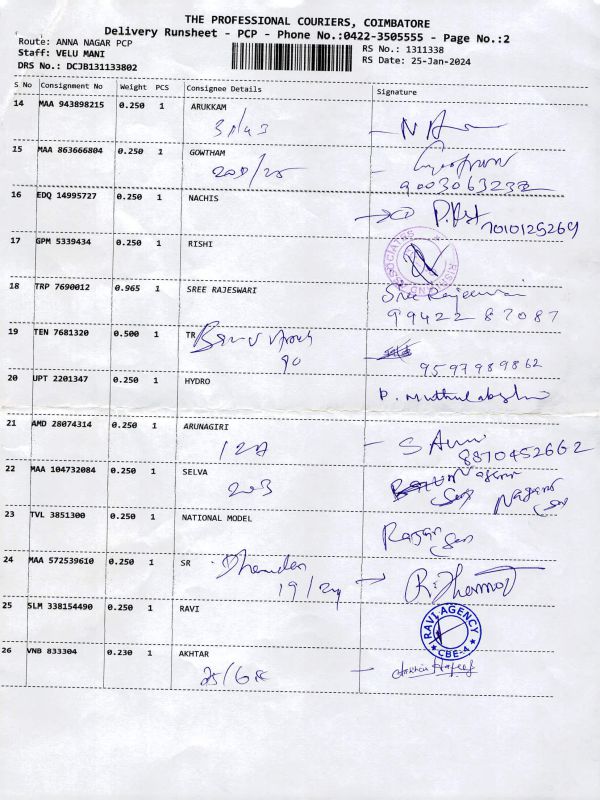 THE PROFESSIONAL COURIERS, COIMBATORE
Delivery Runsheet - PCP - Phone No.:0422-3505555 - Page No.:2
Route: ANNA NAGAR PCP RS No.: 1311338
Staff: VELU MANI RS Date: 25-Jan-2024
DRS No.: DCJB131133802
S No Consignment No Weight PCS Consignee Details Signature
14 MAA 943898215 0.250 1 ARUKKAM
15 MAA 863666804 0.250 1 GOWTHAM
9003063232
16 EDQ 14995727 0.250 1 NACHIS
7010125269
17 GPM 5339434 0.250 1 RISHI
18 TRP 7690012 0.965 1 SREE RAJESWARI
Sree Rajeswari
99422 87087
19 TEN 7681320 0.500 1 TR
9597989862
20 UPT 2201347 0.250 1 HYDRO
21 AMD 28074314 0.250 1 ARUNAGIRI
127
8870452662
22 MAA 104732084 0.250 1 SELVA
203
23 TVL 3851300 0.250 1 NATIONAL MODEL
24 MAA 572539610 0.250 1 SR
25 SLM 338154490 0.250 1 RAVI
RAVI AGENCY
CBE-4
26 VNB 833304 0.230 1 AKHTAR